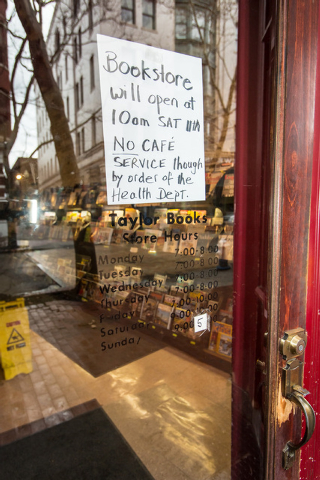 Bookstore
will open at
10am SAT 11th
NO CAFÉ
SERVICE though
by order of the
Health Dept.
Taylor Books
Store Hours
Monday 7:00-8:00
Tuesday 7:00-8:00
Wednesday 7:00-8:00
Thursday 7:00-8:00
Friday
Saturday
Sunday
5